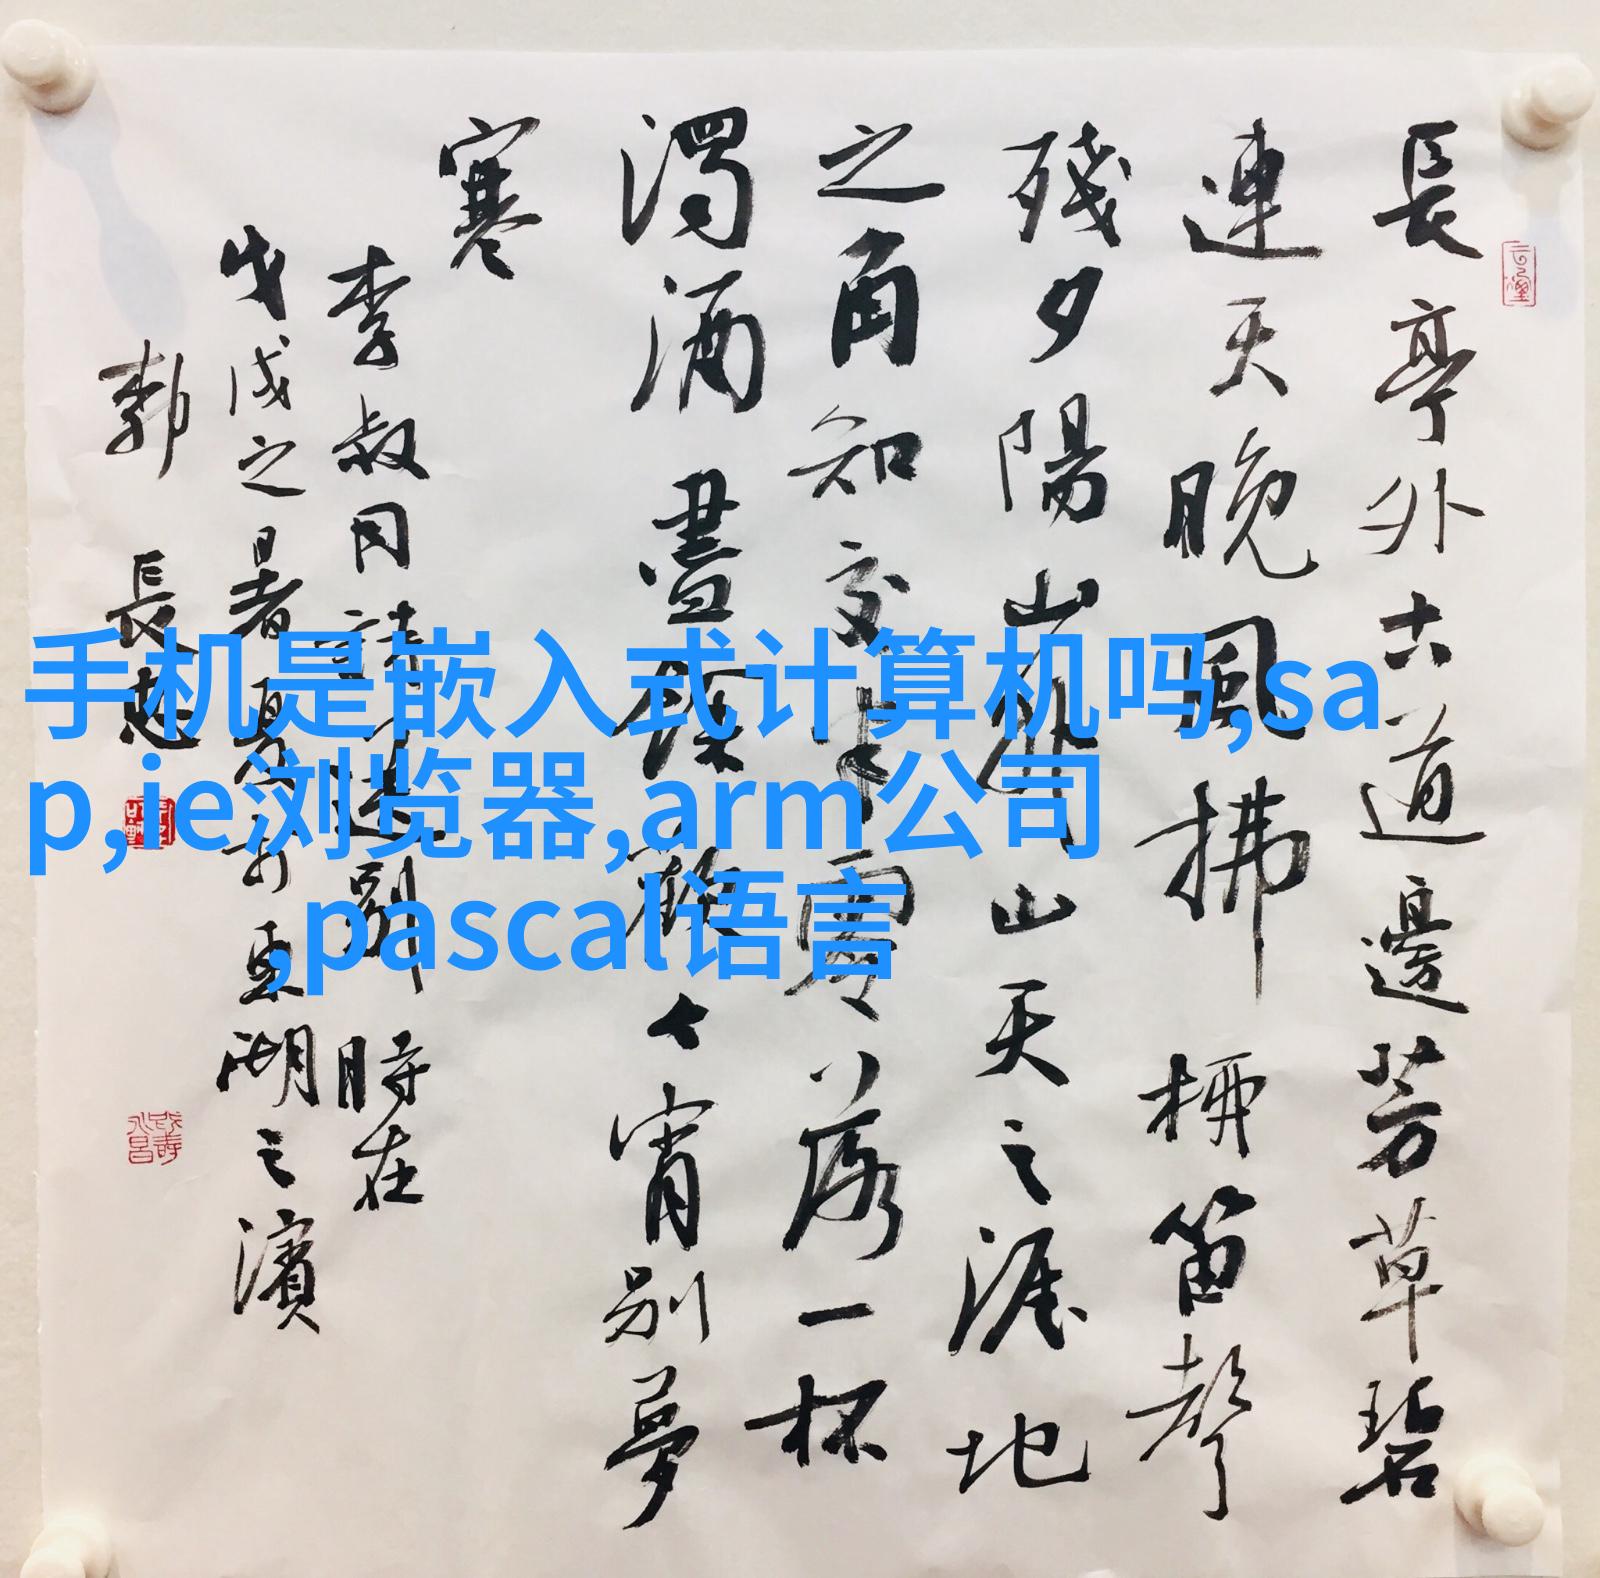 長亭外古道邊芳草碧
連天晚風拂柳笛聲
殘夕陽山外山天之涯地
之角知交半零落一杯
濁酒盡餘歡今宵別夢
寒
李叔同詩送別時在
戊戌之暑夏於東湖之濱
郭長志
手机是嵌入式计算机吗,sa
p,ie浏览器,arm公司
,pascal语言